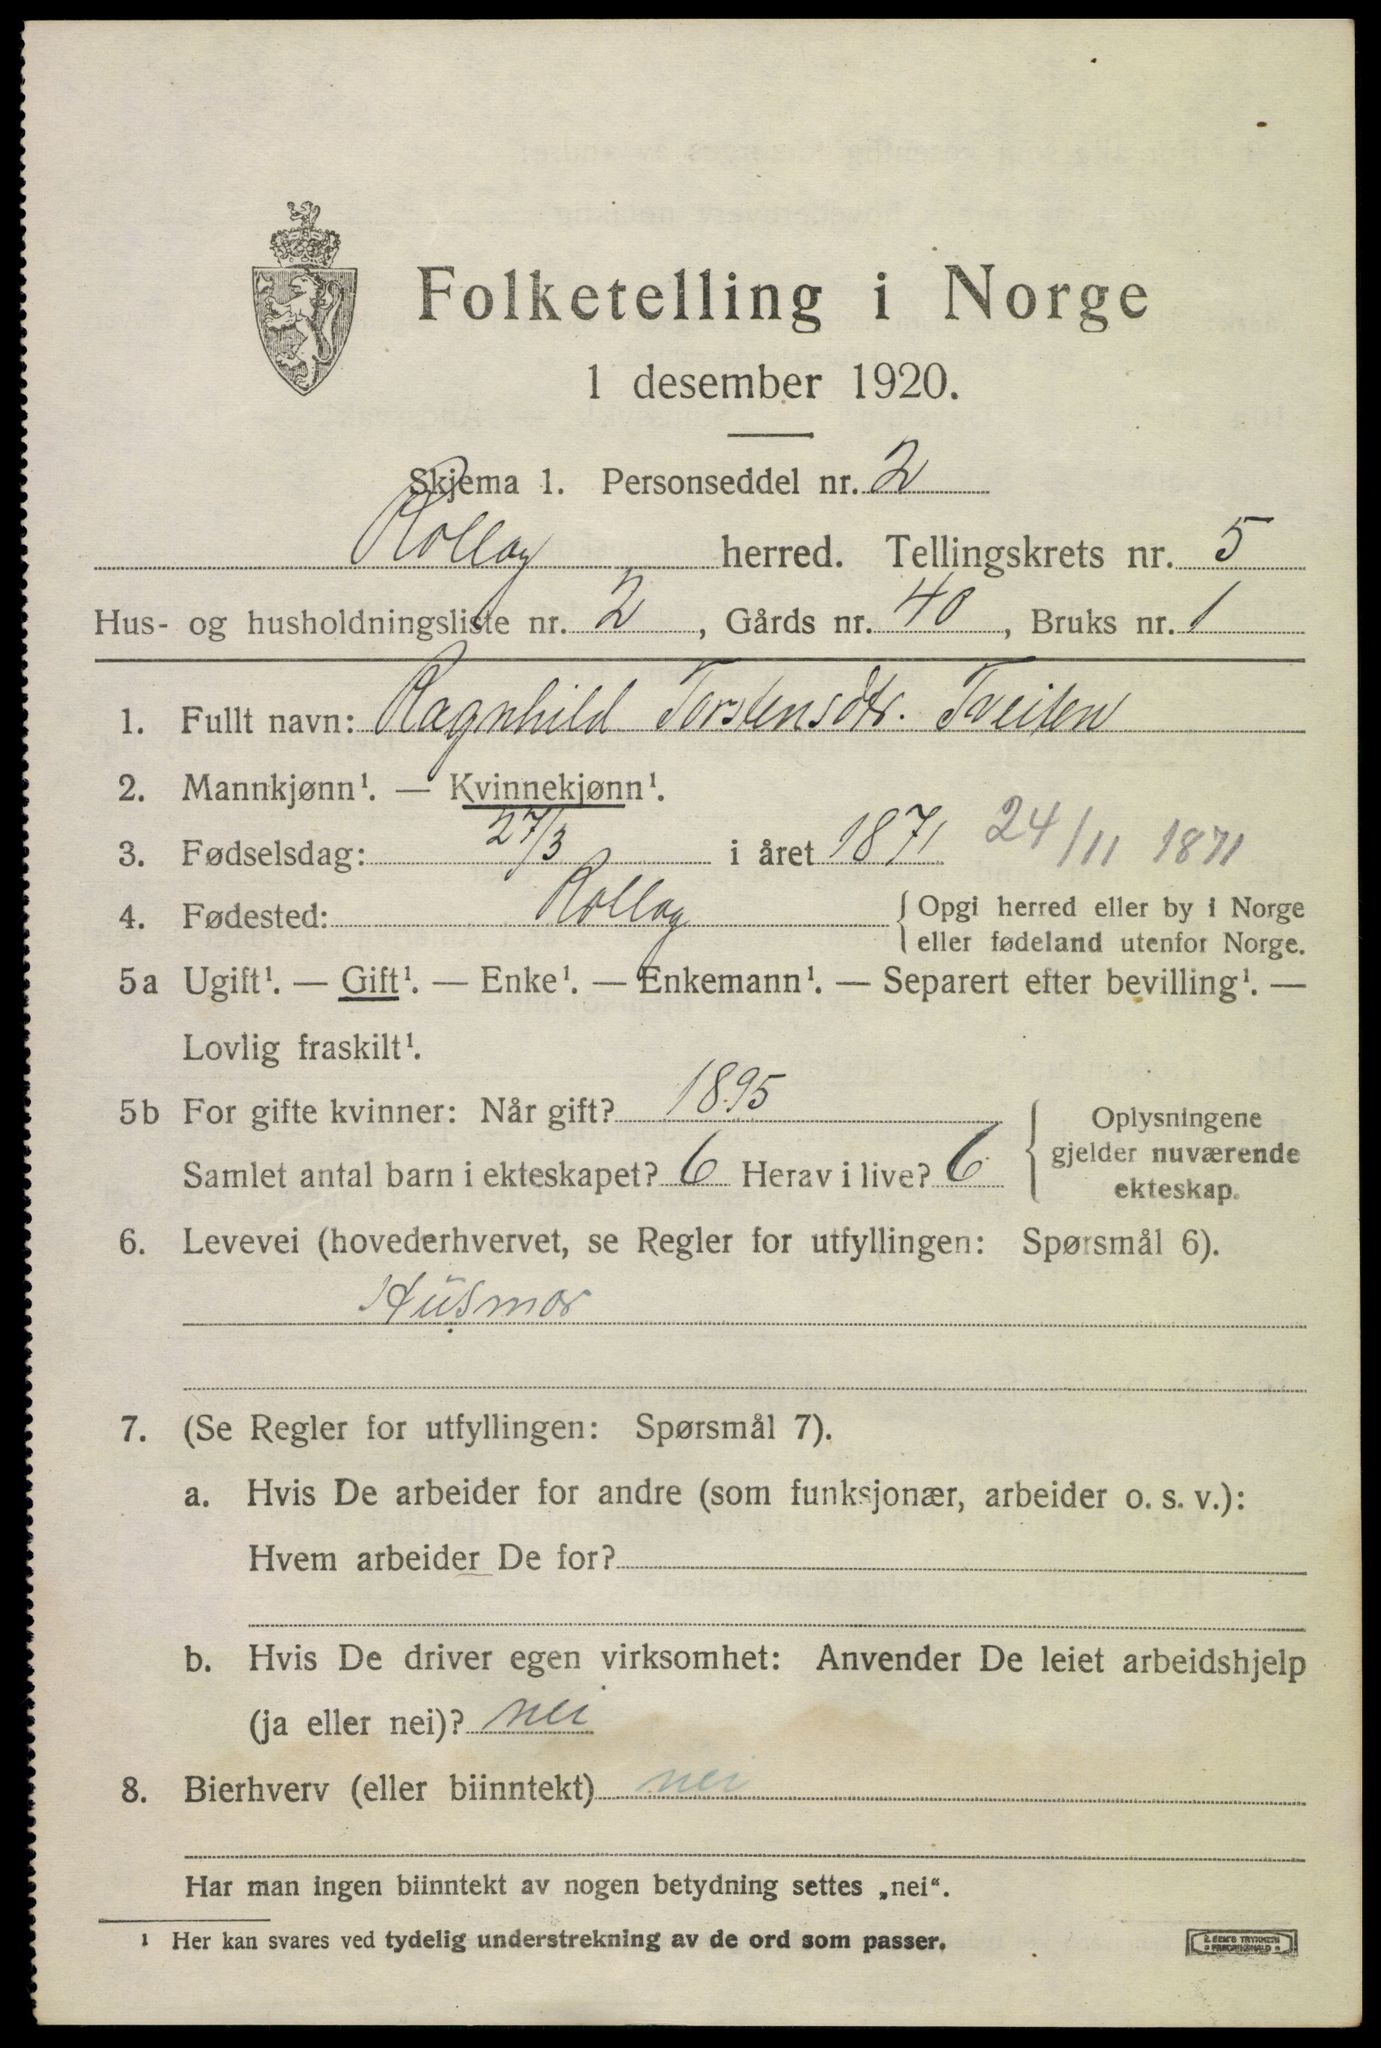 Folketelling i Norge
1 desember 1920.
Skjema 1. Personseddel nr. 2
Rollag herred. Tellingskrets nr. 5
Hus- og husholdningsliste nr. 2, Gårds nr. 40, Bruks nr. 1
1. Fullt navn: Ragnhild Torstensdtr. Tveiten
2. Mannkjønn¹. — Kvinnekjønn¹.
3. Fødselsdag: 27/3 i året 1871 24/11 1871
4. Fødested: Rollag { Opgi herred eller by i Norge
eller fødeland utenfor Norge.
5a Ugift¹. — Gift¹. — Enke¹. — Enkemann¹. — Separert efter bevilling¹. —
Lovlig fraskilt¹.
5b For gifte kvinner: Når gift? 1895
Samlet antal barn i ekteskapet? 6 Herav i live? 6
Oplysningene
gjelder nuværende
ekteskap.
6. Levevei (hovederhvervet, se Regler for utfyllingen: Spørsmål 6).
Husmor
7. (Se Regler for utfyllingen: Spørsmål 7).
a. Hvis De arbeider for andre (som funksjonær, arbeider o. s. v.):
Hvem arbeider De for?
b. Hvis De driver egen virksomhet: Anvender De leiet arbeidshjelp
(ja eller nei)? nei
8. Bierhverv (eller biinntekt) nei
Har man ingen biinntekt av nogen betydning settes „nei“.
¹ Her kan svares ved tydelig understrekning av de ord som passer.